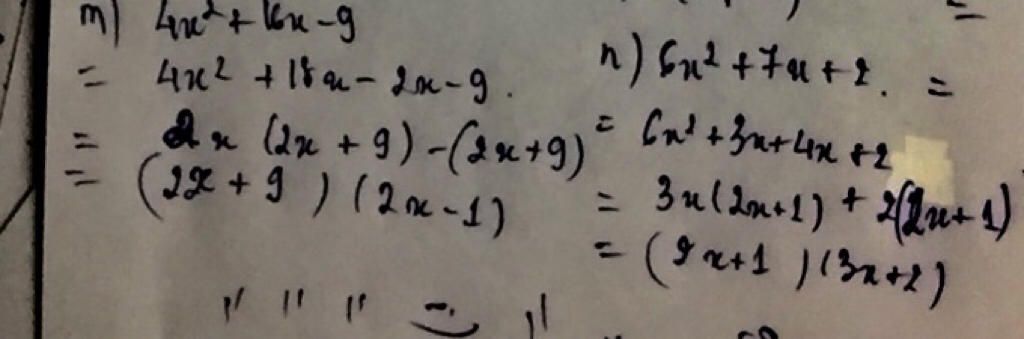 m) 4x² + 16x - 9
= 4x² + 18x - 2x - 9.
= 2x (2x + 9) - (2x + 9)
= (2x + 9) (2x - 1)
n) 6x² + 7x + 2. =
= 6x² + 3x + 4x + 2
= 3x (2x + 1) + 2(2x + 1)
= (2x + 1) (3x + 2)